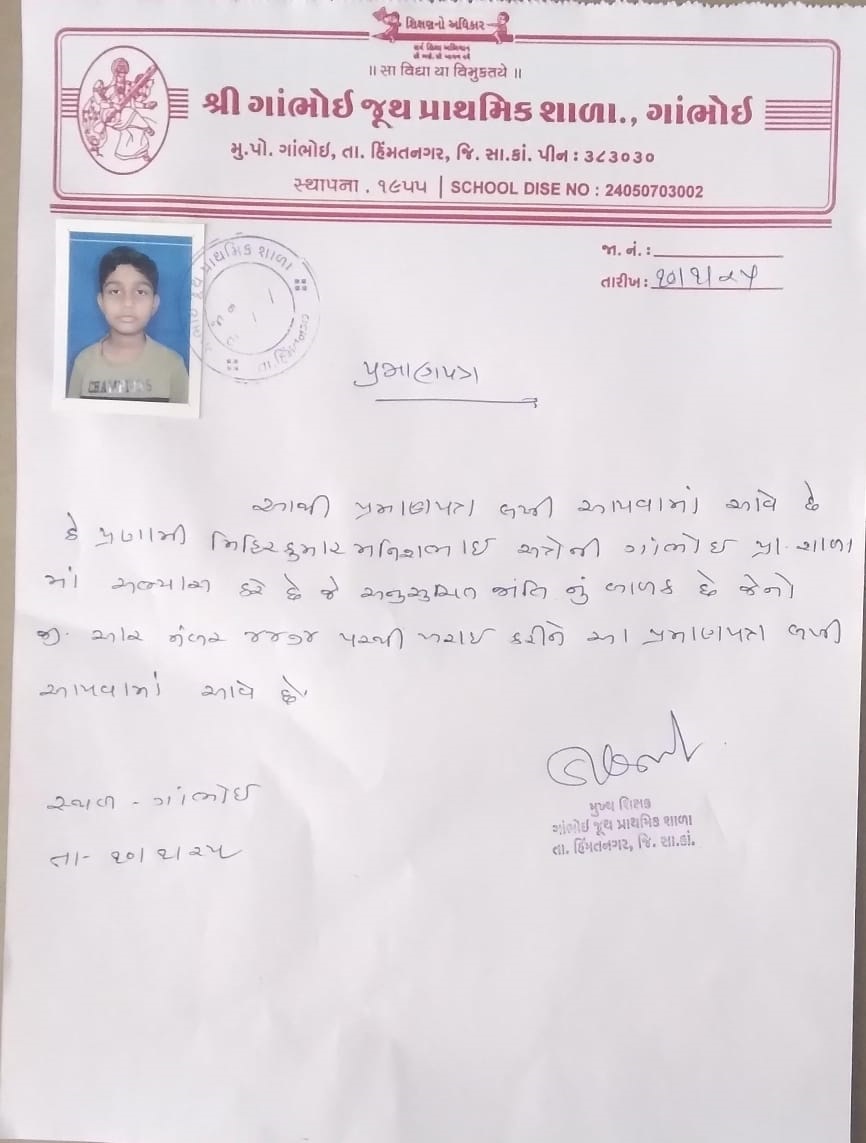 શિક્ષણનો અધિકાર
સર્વ શિક્ષા અભિયાન
॥ સા વિદ્યા યા વિમુક્તયે ॥
શ્રી ગાંભોઇ જૂથ પ્રાથમિક શાળા., ગાંભોઇ
મુ.પો. ગાંભોઇ, તા. હિંમતનગર, જિ. સા.કાં. પીન : ૩૮૩૦૩૦
સ્થાપના . ૧૯૫૫ | SCHOOL DISE NO : 24050703002
જા. નં. :
તારીખ : ૧૦/૧/૨૫
પ્રાથમિક શાળા
તા. હિંમતનગર
CHAMPIONS
પ્રમાણપત્ર
આથી પ્રમાણપત્ર લખી આપવામાં આવે છે
કે પ્રણામી મિહિરકુમાર મનિશભાઇ અત્રેની ગાંભોઇ પ્રા. શાળા
માં અભ્યાસ કરે છે જે અનુસુચિત જાતિ નું બાળક છે જેનો
જી. આર નંબર ૪૪૭૪ પરથી ખરાઇ કરીને આ પ્રમાણપત્ર લખી
આપવામાં આવે છે.
સ્થળ - ગાંભોઇ
તા - ૧૦/૧/૨૫
મુખ્ય શિક્ષક
ગાંભોઇ જૂથ પ્રાથમિક શાળા
તા. હિંમતનગર, જિ. સા.કાં.